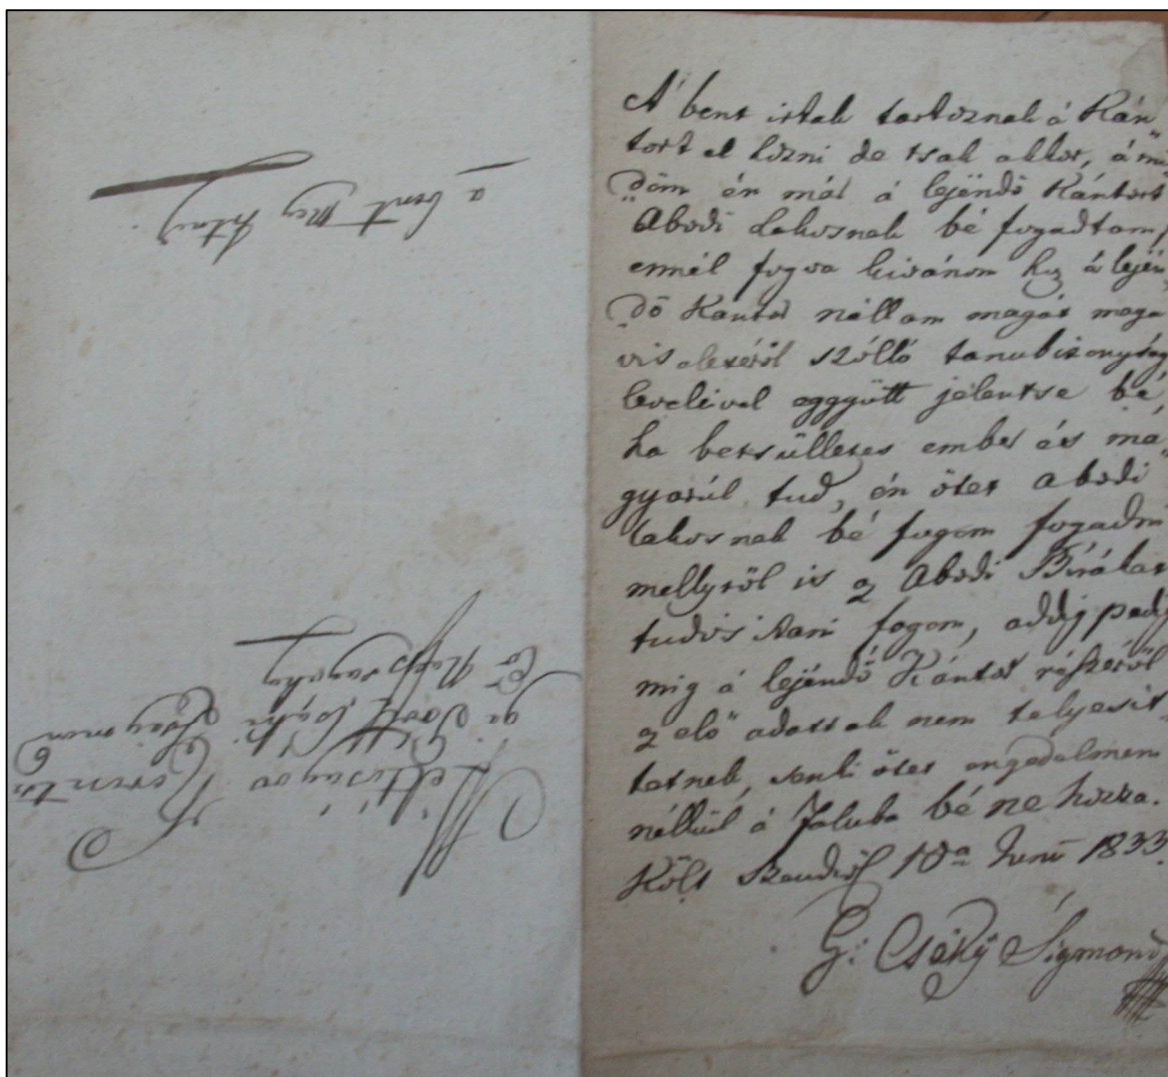 a bent meg irtak
Méltóságos
Gróff Csáky
A' bent irtak tartoznak á Kán„
tort el hozni de tsak akkor, á mi„
„dőn én már á lejéndő Kántort
Abodi Lakosnak bé fogadtam,
ennél fogva kivánom á lején„
„dő Kantor nállam magát maga
viseletéről szólló tanubizonyság
levelével eggyütt jelentse bé,
ha betsülletes ember és ma„
gyarúl tud, én ötet abodi
lakosnak bé fogom fogadni
mellyről is Abodi Birákat
tudositani fogom, addig pedig
mig á lejéndő Kántor részéről
elő adattak nem telyesit„
tetnek, senki ötet engedelmem
nélkül á Faluba bé ne hozza.
Költ 10ª Juni 1833.
G: Csáky Sigmond